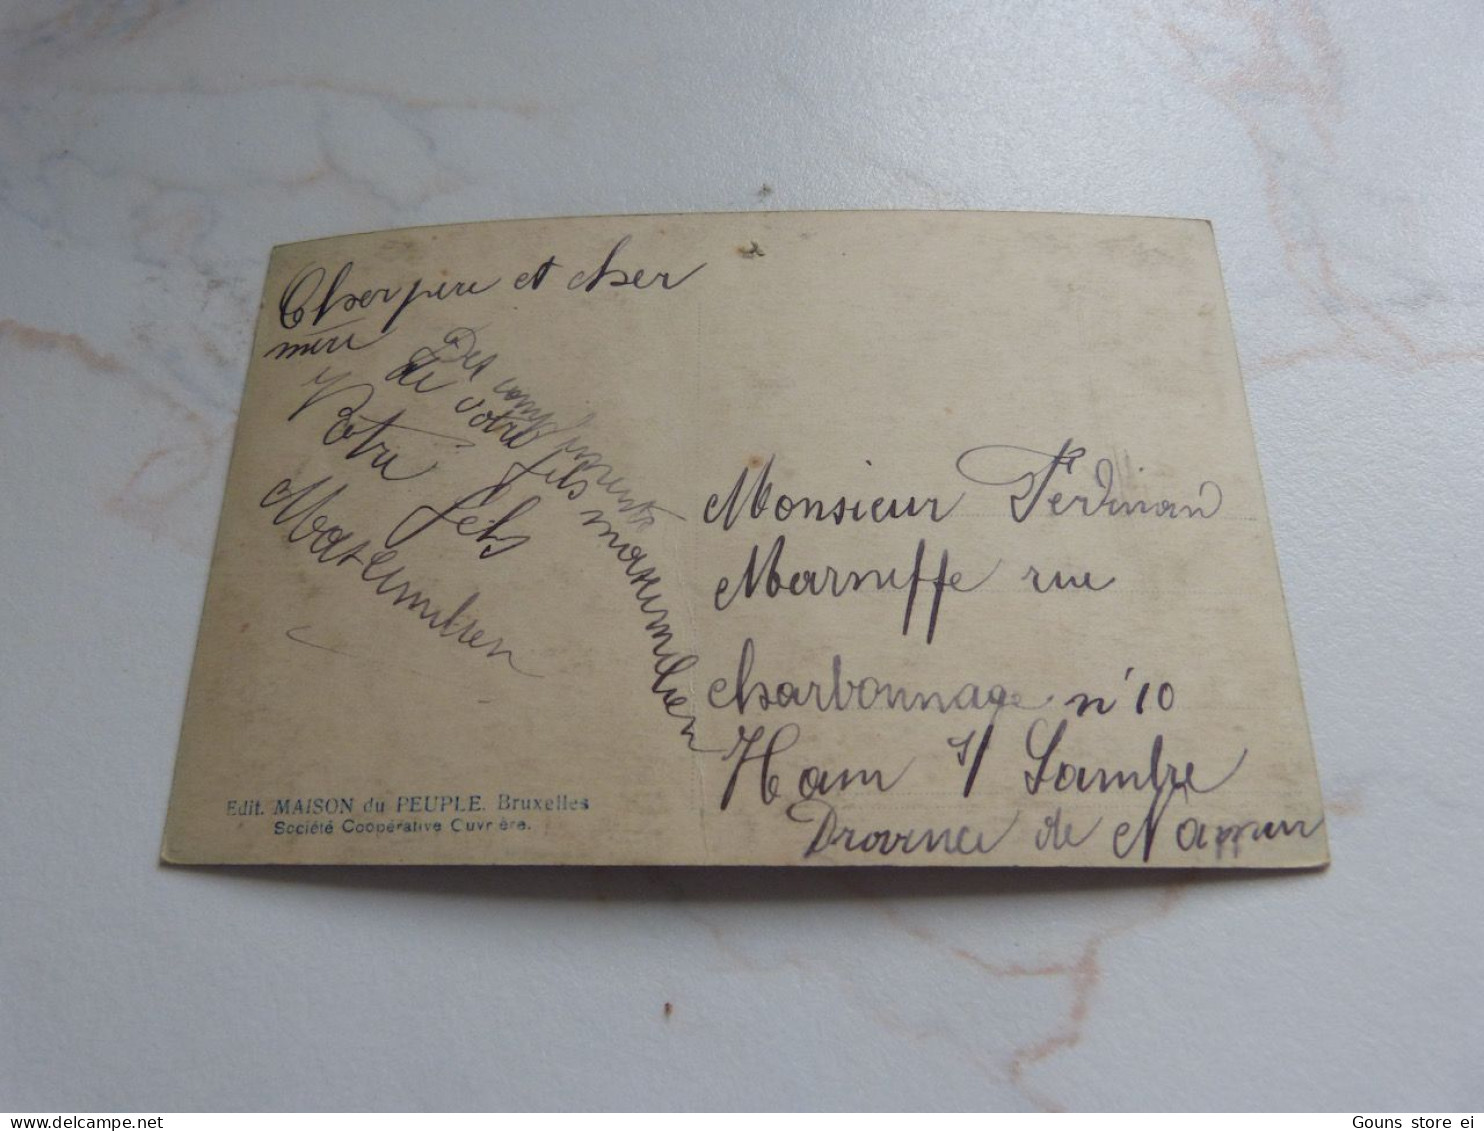 Cher pere et cher
mere
Des compliments
de votre fils maximilien
Votre fils
Maximilien
Monsieur Ferdinand
Marneffe rue
charbonnage n° 10
Ham s/ Sambre
Province de Namur
Edit. MAISON du PEUPLE. Bruxelles
Société Coopérative Ouvrière.
Gouns store ei